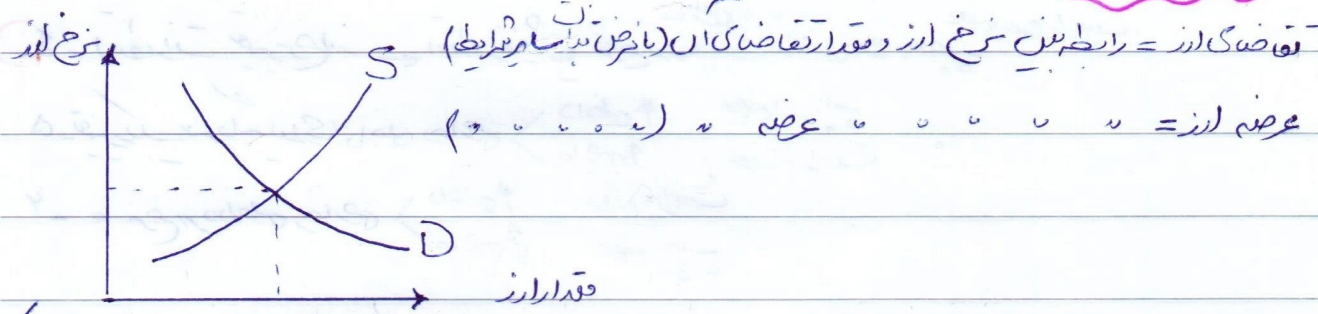 نرخ ارز
تقاضای ارز = رابطه بین نرخ ارز و مقدار تقاضای آن (با فرض ثبات سایر شرایط)
S
عرضه ارز = " " " " " عرضه " (" " " " ")
D
مقدار ارز